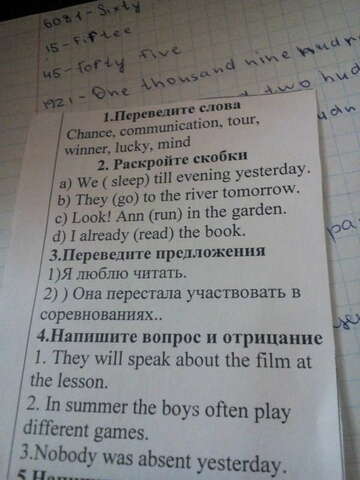 6081 - Sixty
15 - Fiftee
45 - Forty five
1921 - One thousand nine hundre
two hud
1.Переведите слова
Chance, communication, tour,
winner, lucky, mind
2. Раскройте скобки
a) We ( sleep) till evening yesterday.
b) They (go) to the river tomorrow.
c) Look! Ann (run) in the garden.
d) I already (read) the book.
3.Переведите предложения
1)Я люблю читать.
2) ) Она перестала участвовать в
соревнованиях..
4.Напишите вопрос и отрицание
1. They will speak about the film at
the lesson.
2. In summer the boys often play
different games.
3.Nobody was absent yesterday.